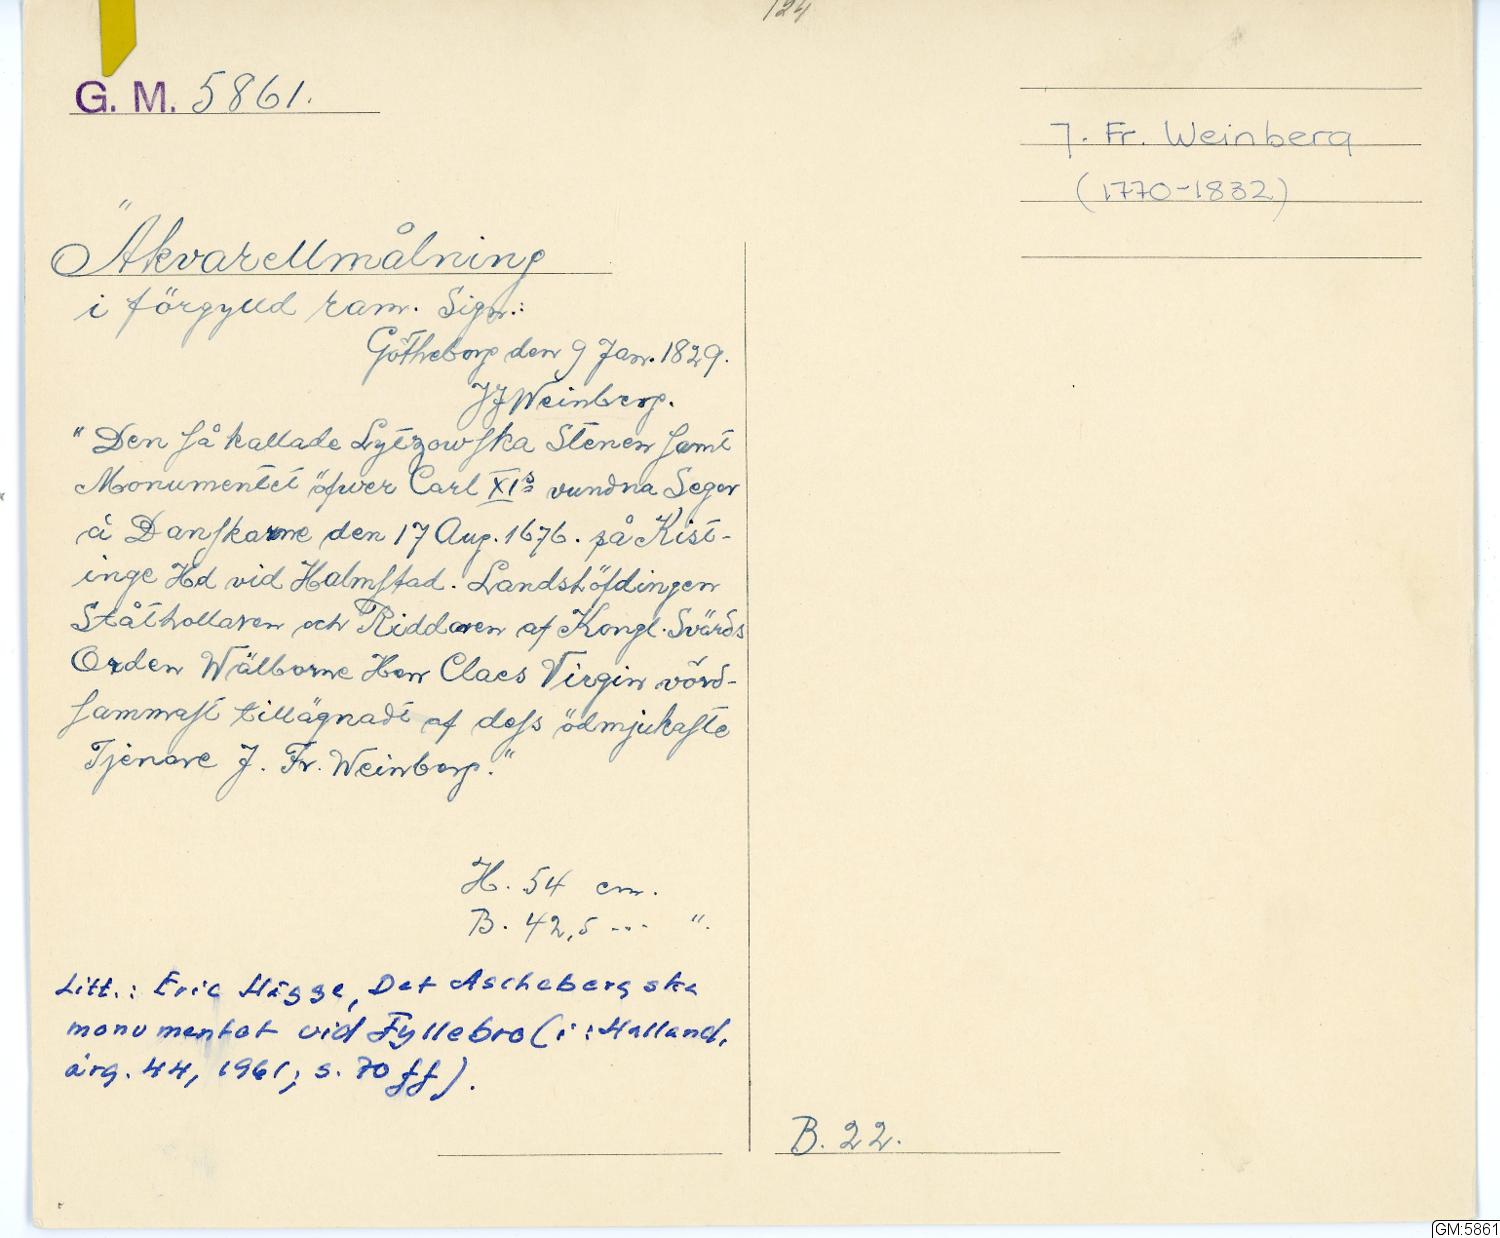 124
G. M. 5861.
J. Fr. Weinberg
(1770-1832)
"Akvarellmålning
i förgylld ram. Sign.:
Götheborg den 9 Jan. 1829.
JFWeinberg.
"Den så kallade Lytzowska Stenen samt
Monumentet öfwer Carl XIs vundna Seger
å Danskarne den 17 Aug. 1676. på Kist-
inge Hd vid Halmstad. Landshöfdingen
Ståthollaren och Riddaren af Kongl. Svärds
Orden Wälborne Herr Claes Virgin vörd-
sammast tillägnadt af dess ödmjukaste
Tjenare J. Fr. Weinberg."
H. 54 cm.
B. 42,5 --- ".
Litt.: Eric Hägge, Det Aschebergska
monumentet vid Fyllebro (i: Halland,
årg. 44, 1961, s. 70 ff).
B. 22.
GM:5861